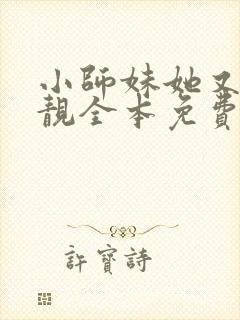 小師妹她又
靚全本免費
許寶詩